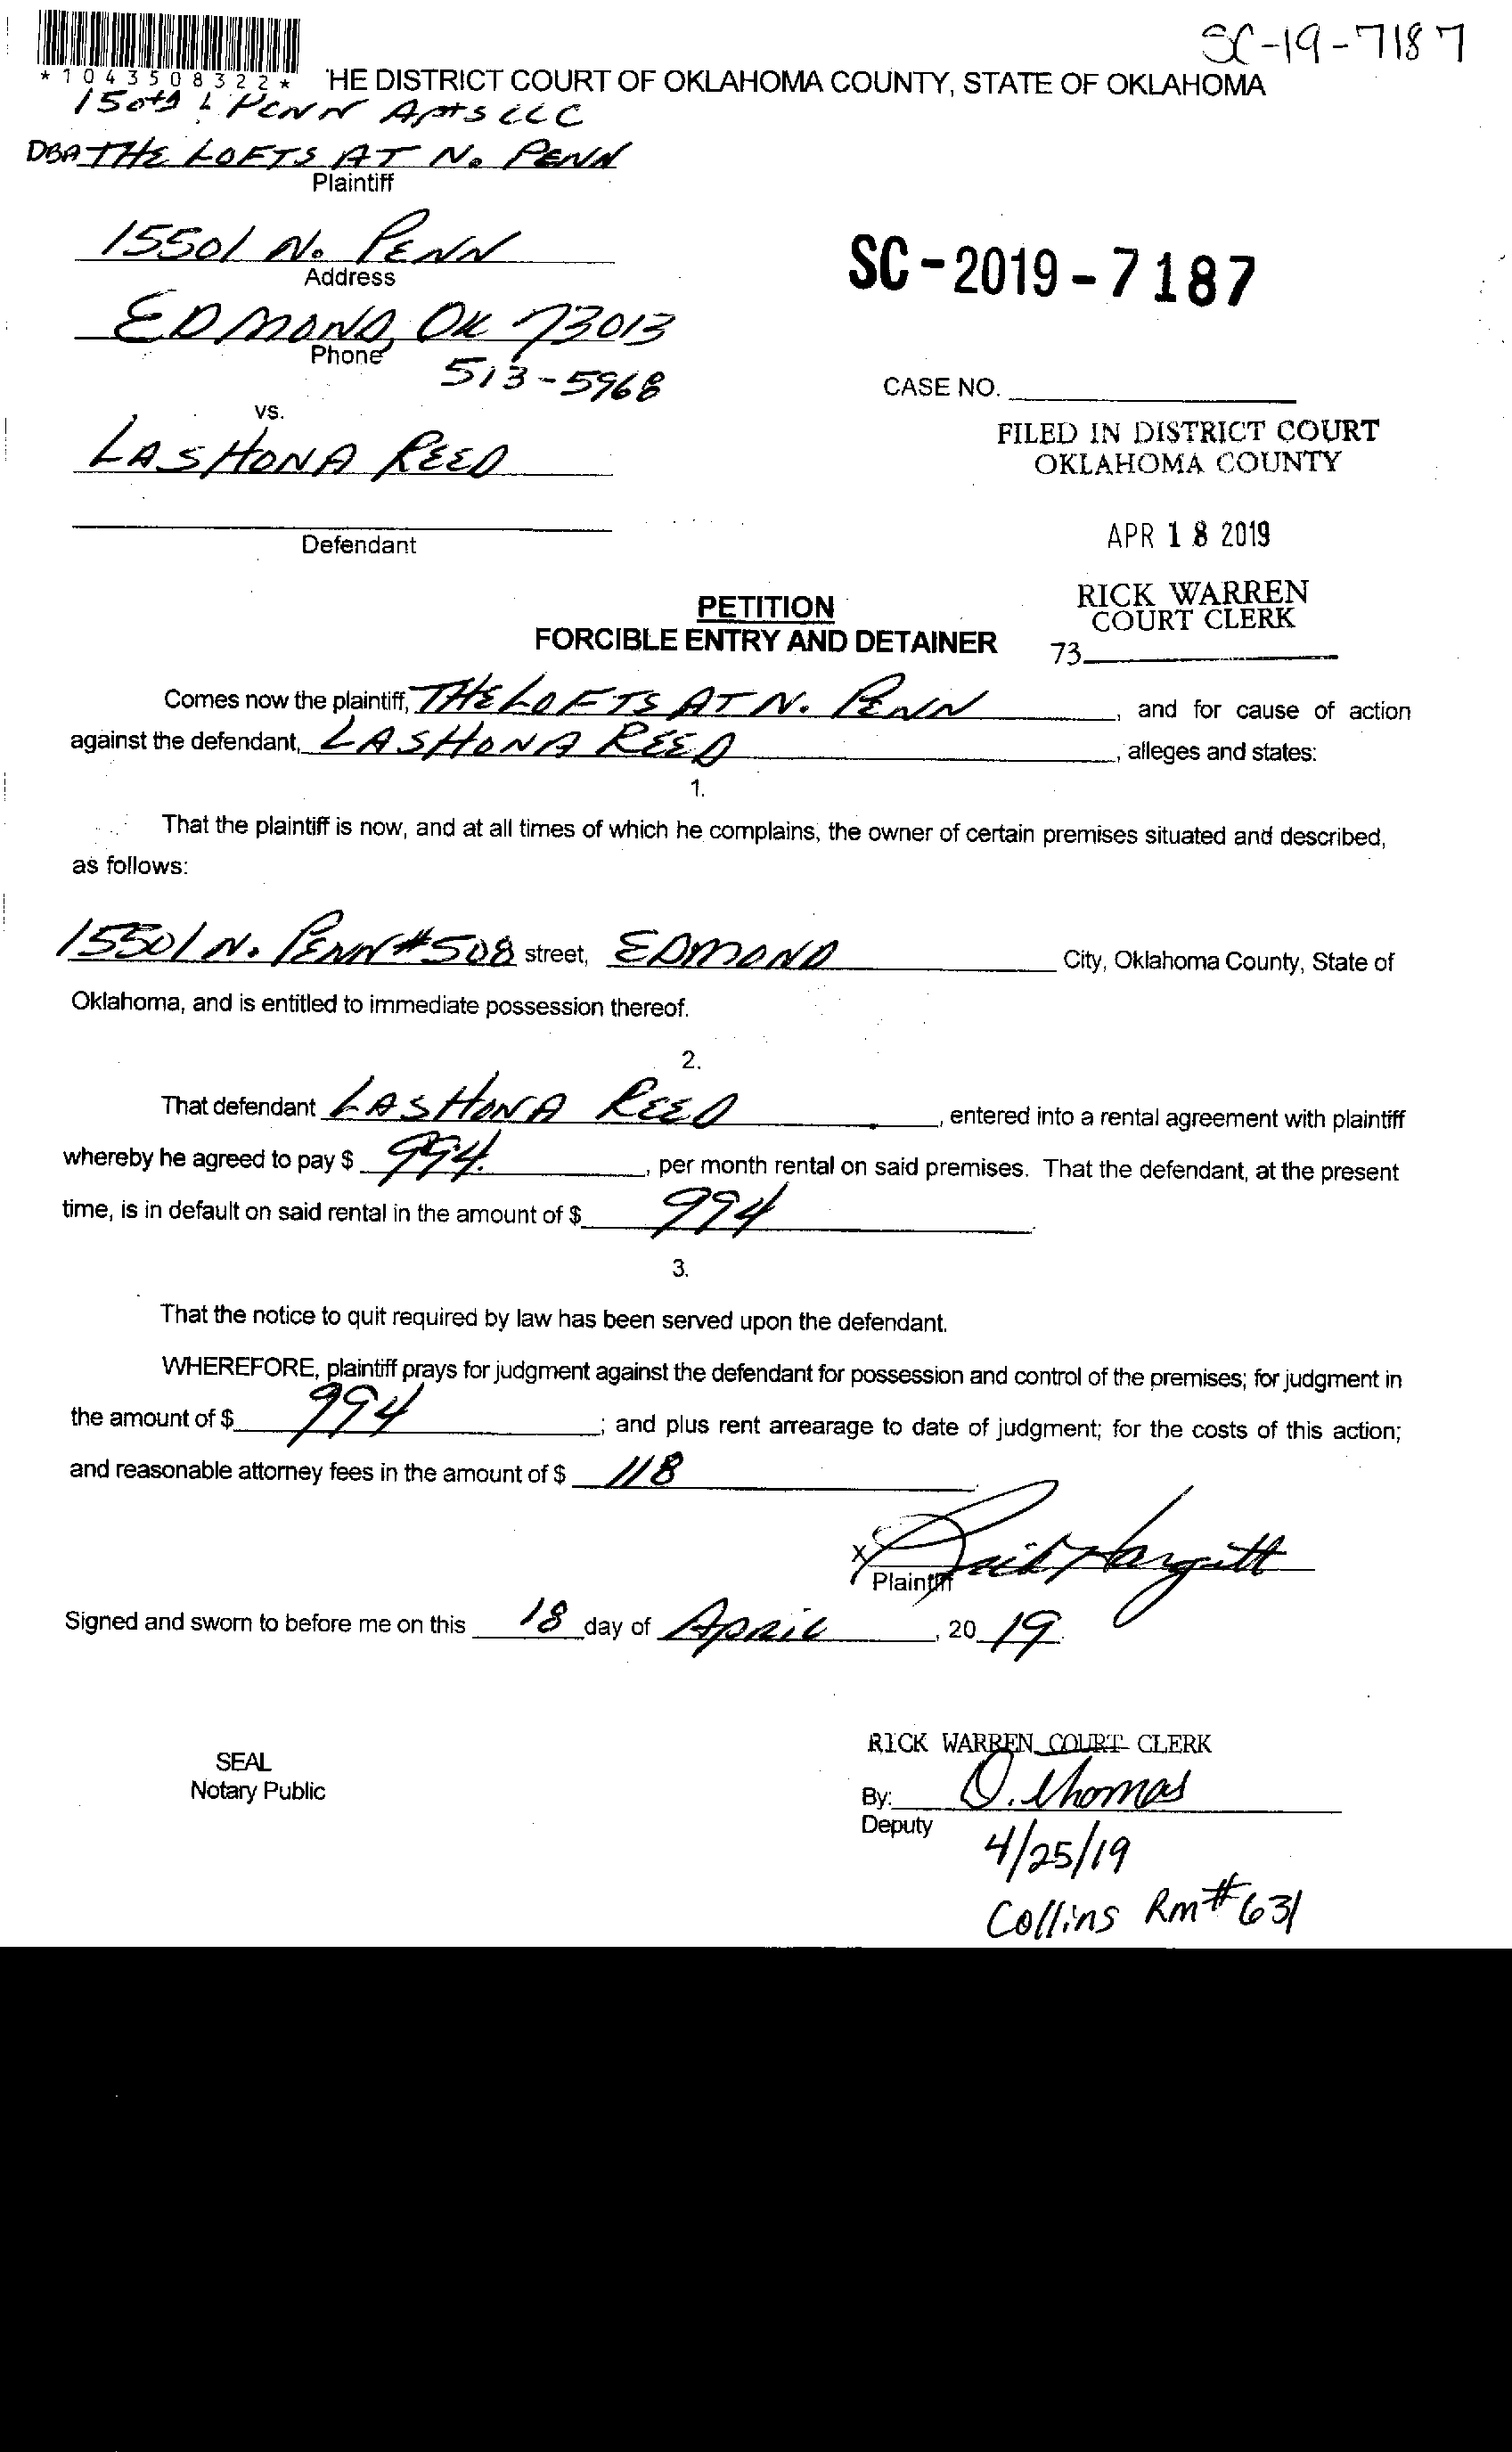 SC-19-7187
*1043508322*
'HE DISTRICT COURT OF OKLAHOMA COUNTY, STATE OF OKLAHOMA
150th & PENN APTS LLC
DBA THE LOFTS AT N. PENN
Plaintiff
15501 N. PENN
Address
SC-2019-7187
EDMOND, OK 73013
Phone
513-5968
CASE NO.
vs.
LASHONA REED
FILED IN DISTRICT COURT
OKLAHOMA COUNTY
Defendant
APR 18 2019
PETITION
FORCIBLE ENTRY AND DETAINER
RICK WARREN
COURT CLERK
73
Comes now the plaintiff, THE LOFTS AT N. PENN, and for cause of action
against the defendant, LASHONA REED, alleges and states:
1.
That the plaintiff is now, and at all times of which he complains, the owner of certain premises situated and described,
as follows:
15501 N. PENN #508 street, EDMOND City, Oklahoma County, State of
Oklahoma, and is entitled to immediate possession thereof.
2.
That defendant LASHONA REED, entered into a rental agreement with plaintiff
whereby he agreed to pay $ 994., per month rental on said premises. That the defendant, at the present
time, is in default on said rental in the amount of $ 994.
3.
That the notice to quit required by law has been served upon the defendant.
WHEREFORE, plaintiff prays for judgment against the defendant for possession and control of the premises; for judgment in
the amount of $ 994; and plus rent arrearage to date of judgment; for the costs of this action;
and reasonable attorney fees in the amount of $ 118.
X
Plaintiff
Signed and sworn to before me on this 18 day of APRIL, 20 19.
RICK WARREN COURT CLERK
SEAL
Notary Public
By: O. Thomas
Deputy
4/25/19
Collins Rm# 631